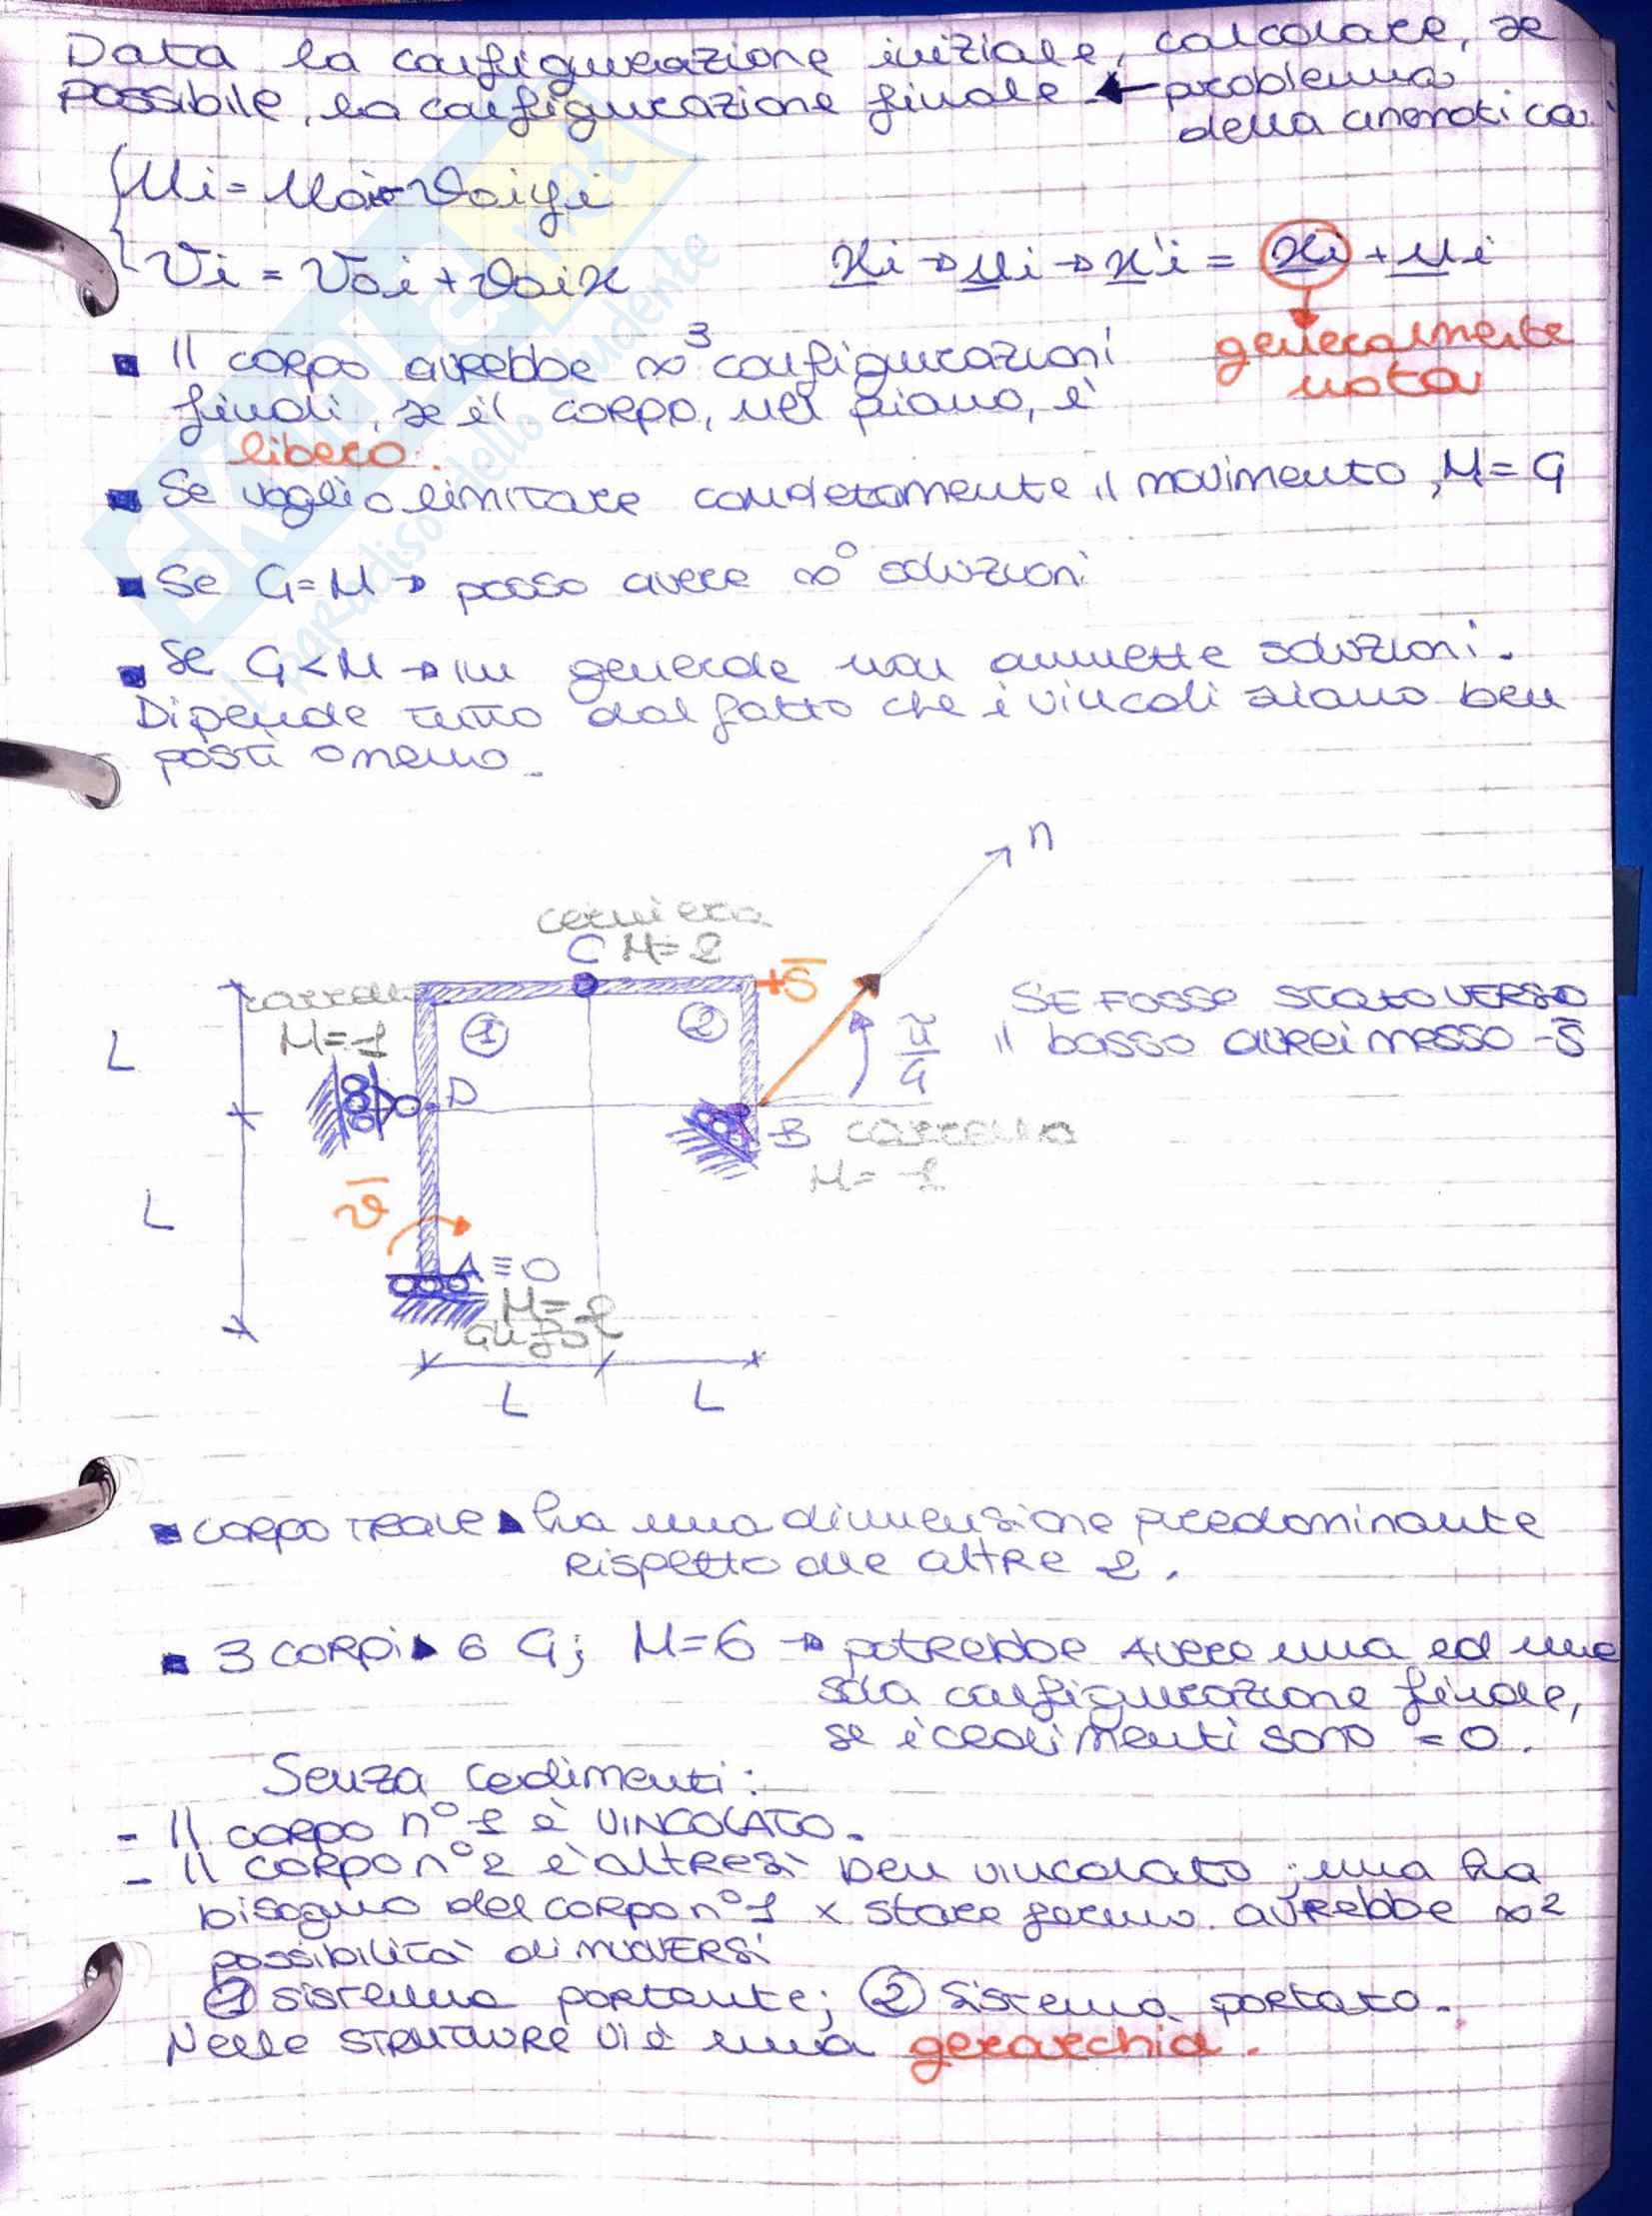 Data la configurazione iniziale, calcolare, se
possibile, la configurazione finale ← problema
della cinematica
ui = uoi - ϑoi yi
vi = voi + ϑoi x
xi → ui → x'i = xi + ui
generalmente
nota
Il corpo avrebbe ∞³ configurazioni
finali, se il corpo, nel piano, è
libero.
Se voglio limitare completamente il movimento, M = G
Se G = M → posso avere ∞⁰ soluzioni
Se G < M → in generale non ammette soluzioni.
Dipende tutto dal fatto che i vincoli siano ben
posti o meno.
n
cerniera
C M=2
+s̄
carrello
M=1
1
2
SE FOSSE STATO VERSO
il basso avrei messo -s̄
L
π/4
D
B carrello
M=1
ϑ̄
L
A≡O
M=2
L
L
corpo trave ha una dimensione predominante
rispetto alle altre 2.
3 corpi 6 G; M=6 → potrebbe avere una ed una
sola configurazione finale,
se i cedimenti sono = 0.
Senza cedimenti:
- Il corpo n° 1 è VINCOLATO.
- Il corpo n° 2 è altresì ben vincolato; ma ha
bisogno del corpo n° 1 x stare fermo. avrebbe ∞²
possibilità di muoversi
1 sistema portante; 2 sistema portato.
Nelle strutture vi è una gerarchia.
SKUOLA.net
il paradiso dello studente